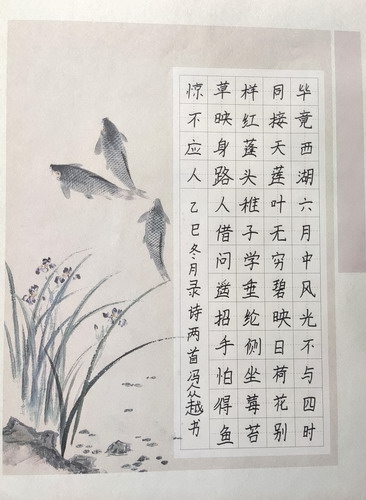 毕竟西湖六月中风光不与四时
同接天莲叶无穷碧映日荷花别
样红蓬头稚子学垂纶侧坐莓苔
草映身路人借问遥招手怕得鱼
惊不应人 乙巳冬月录诗两首冯众越书